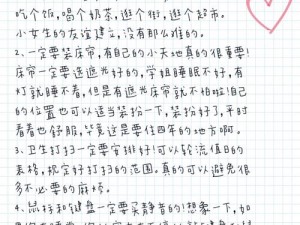 吃个饭,喝个奶茶,逛个街,逛个超市。
小女生的友谊建立,没有那么难的。
2、一定要装床帘,有自己的小天地真的很重要!
床帘一定要选遮光好的,学姐睡眠不好,有
灯就睡不着,但是有遮光床帘就不怕啦!自己
的位置也可以适当装扮一下,装扮好了,平时
看着也舒服,毕竟这是要住四年的地方啊。
3、卫生打扫一定要安排好!可以轮流值日的
表格,规定好打扫的范围。真的可以避免很
多不必要的麻烦。
4、鼠标和键盘一定要买静音的!想象一下,如